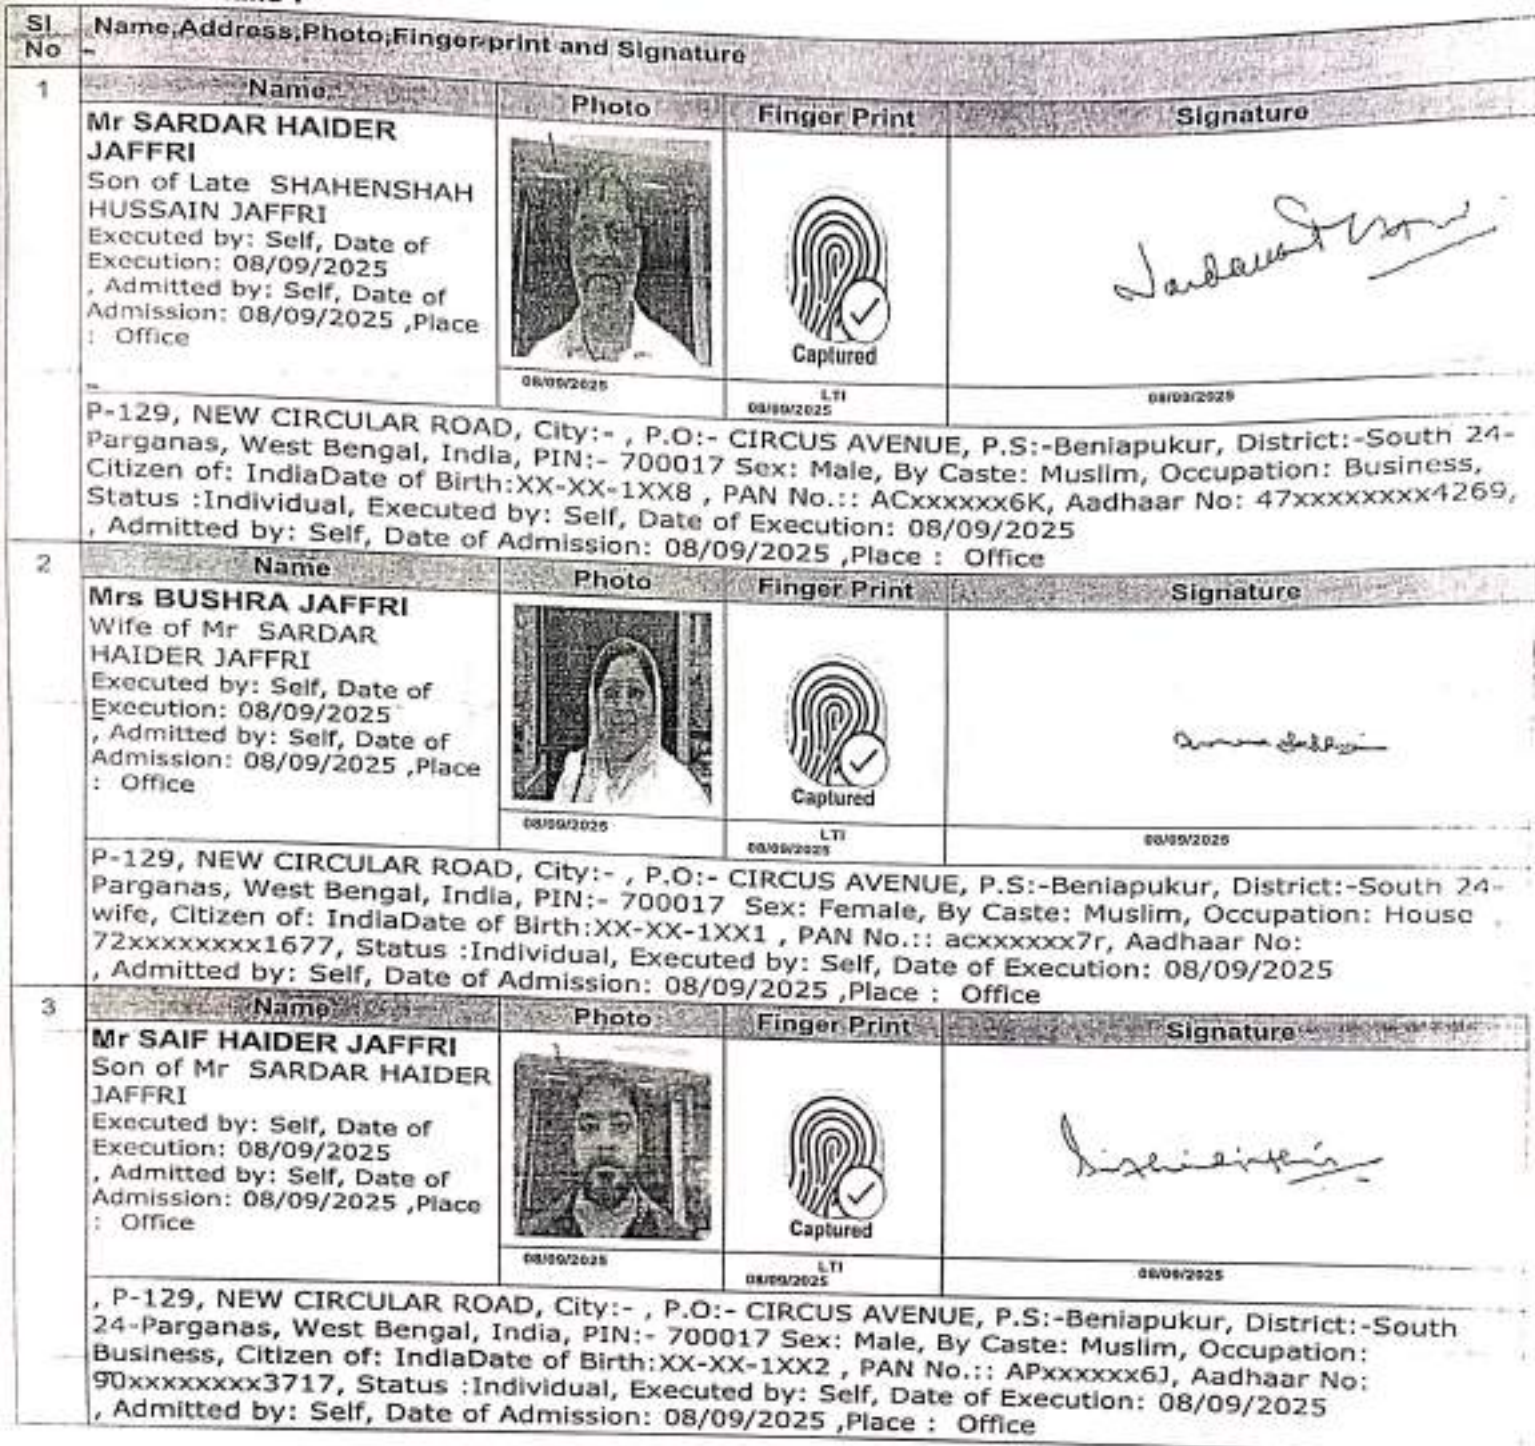 Sl No
Name,Address,Photo,Finger print and Signature
1
Name
Photo
Finger Print
Signature
Mr SARDAR HAIDER
JAFFRI
Son of Late SHAHENSHAH
HUSSAIN JAFFRI
Executed by: Self, Date of
Execution: 08/09/2025
, Admitted by: Self, Date of
Admission: 08/09/2025 ,Place
: Office
Captured
08/09/2025
LTI
08/09/2025
08/09/2025
P-129, NEW CIRCULAR ROAD, City:- , P.O:- CIRCUS AVENUE, P.S:-Beniapukur, District:-South 24-
Parganas, West Bengal, India, PIN:- 700017 Sex: Male, By Caste: Muslim, Occupation: Business,
Citizen of: IndiaDate of Birth:XX-XX-1XX8 , PAN No.:: ACxxxxxx6K, Aadhaar No: 47xxxxxxxx4269,
Status :Individual, Executed by: Self, Date of Execution: 08/09/2025
, Admitted by: Self, Date of Admission: 08/09/2025 ,Place : Office
2
Name
Photo
Finger Print
Signature
Mrs BUSHRA JAFFRI
Wife of Mr SARDAR
HAIDER JAFFRI
Executed by: Self, Date of
Execution: 08/09/2025
, Admitted by: Self, Date of
Admission: 08/09/2025 ,Place
: Office
Captured
08/09/2025
LTI
08/09/2025
08/09/2025
P-129, NEW CIRCULAR ROAD, City:- , P.O:- CIRCUS AVENUE, P.S:-Beniapukur, District:-South 24-
Parganas, West Bengal, India, PIN:- 700017 Sex: Female, By Caste: Muslim, Occupation: House
wife, Citizen of: IndiaDate of Birth:XX-XX-1XX1 , PAN No.:: acxxxxxx7r, Aadhaar No:
72xxxxxxxx1677, Status :Individual, Executed by: Self, Date of Execution: 08/09/2025
, Admitted by: Self, Date of Admission: 08/09/2025 ,Place : Office
3
Name
Photo
Finger Print
Signature
Mr SAIF HAIDER JAFFRI
Son of Mr SARDAR HAIDER
JAFFRI
Executed by: Self, Date of
Execution: 08/09/2025
, Admitted by: Self, Date of
Admission: 08/09/2025 ,Place
: Office
Captured
08/09/2025
LTI
08/09/2025
08/09/2025
, P-129, NEW CIRCULAR ROAD, City:- , P.O:- CIRCUS AVENUE, P.S:-Beniapukur, District:-South
24-Parganas, West Bengal, India, PIN:- 700017 Sex: Male, By Caste: Muslim, Occupation:
Business, Citizen of: IndiaDate of Birth:XX-XX-1XX2 , PAN No.:: APxxxxxx6J, Aadhaar No:
90xxxxxxxx3717, Status :Individual, Executed by: Self, Date of Execution: 08/09/2025
, Admitted by: Self, Date of Admission: 08/09/2025 ,Place : Office